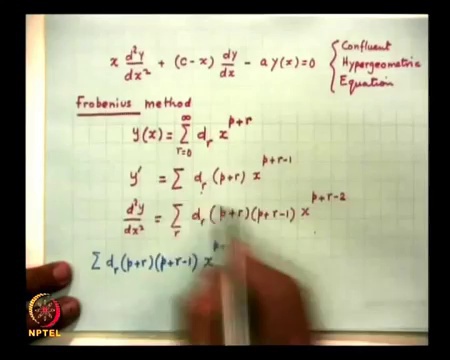 x d²y/dx² + (c-x) dy/dx - a y(x) = 0 { Confluent Hypergeometric Equation
Frobenius method
y(x) = ∑_{r=0}^{∞} d_r x^{p+r}
y' = ∑ d_r (p+r) x^{p+r-1}
d²y/dx² = ∑_r d_r (p+r)(p+r-1) x^{p+r-2}
∑ d_r (p+r)(p+r-1) x
NPTEL